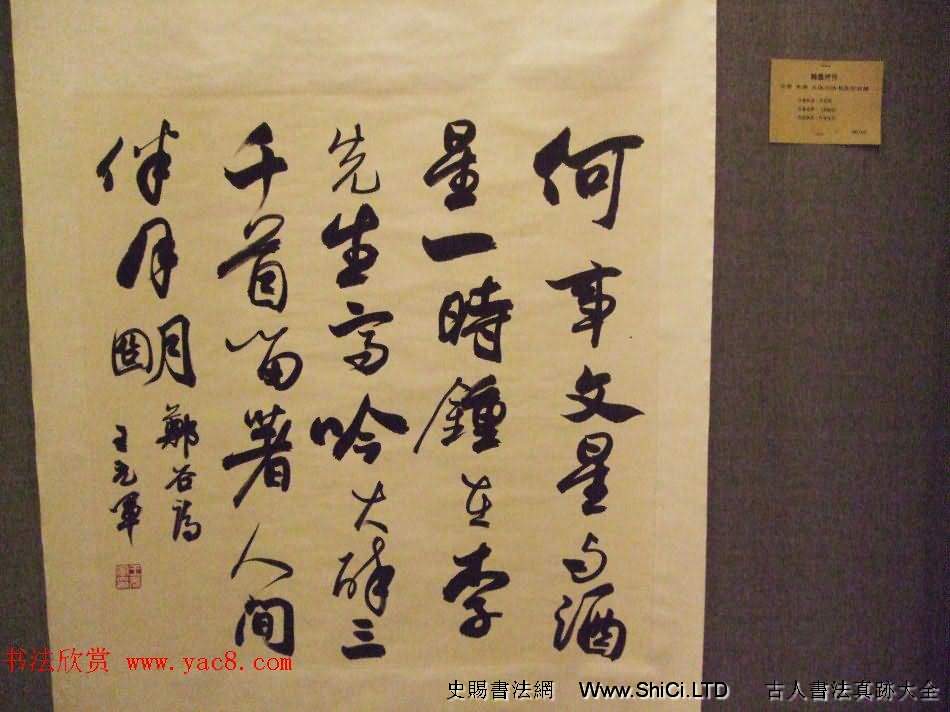 何事文星与酒
星一時鍾在李
先生高吟大醉三
千首留著人間
伴月明
鄭谷詩
王元軍
书法欣赏 www.yac8.com
史賜書法網 Www.ShiCi.LTD 古人書法真跡大全